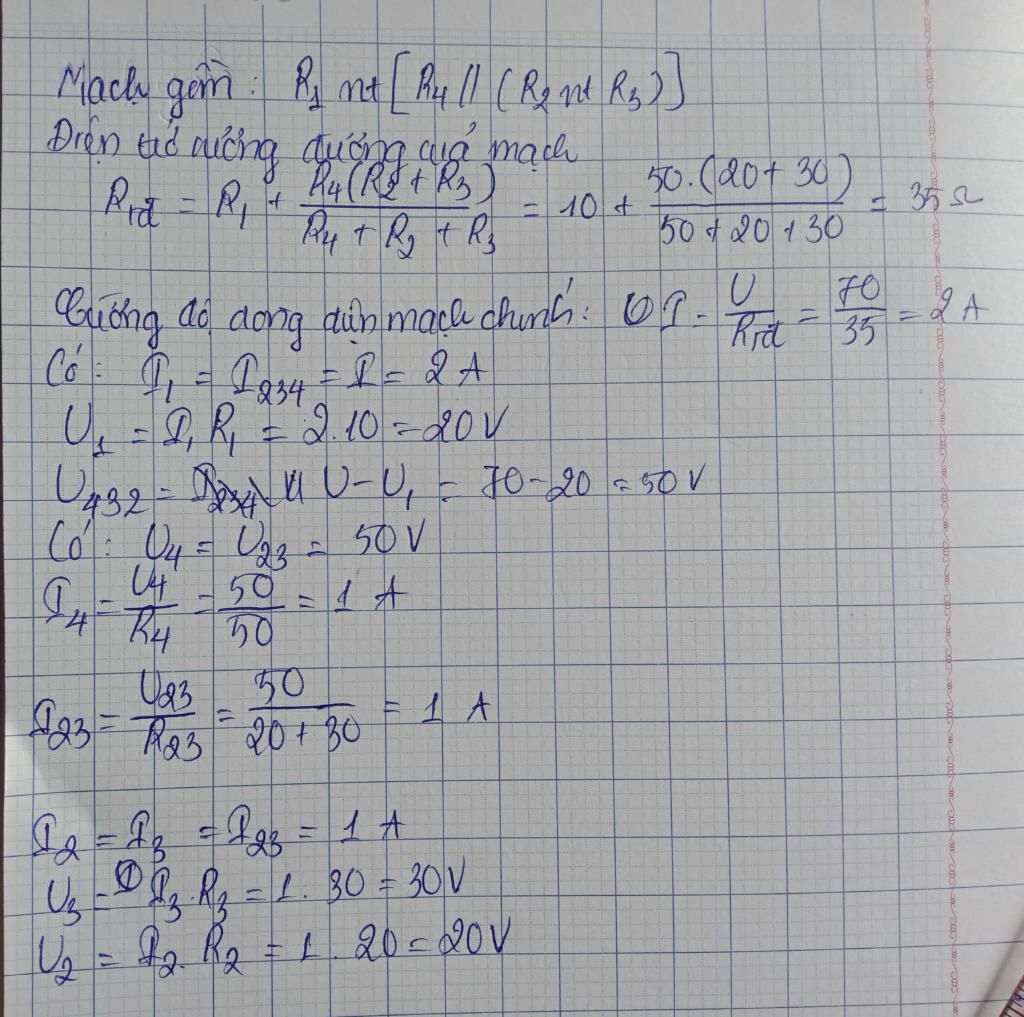 Mạch gồm: R₁ nt [R₄ // (R₂ nt R₃)]
Điện trở tương đương của mạch
Rtđ = R₁ + R₄(R₂ + R₃) / (R₄ + R₂ + R₃) = 10 + 50.(20 + 30) / (50 + 20 + 30) = 35 Ω
Cường độ dòng điện mạch chính: I = U / Rtđ = 70 / 35 = 2 A
Có: I₁ = I₂₃₄ = I = 2 A
U₁ = I₁ R₁ = 2.10 = 20 V
U₄₃₂ = U - U₁ = 70 - 20 = 50 V
Có: U₄ = U₂₃ = 50 V
I₄ = U₄ / R₄ = 50 / 50 = 1 A
I₂₃ = U₂₃ / R₂₃ = 50 / (20 + 30) = 1 A
I₂ = I₃ = I₂₃ = 1 A
U₃ = I₃.R₃ = 1.30 = 30 V
U₂ = I₂.R₂ = 1.20 = 20 V